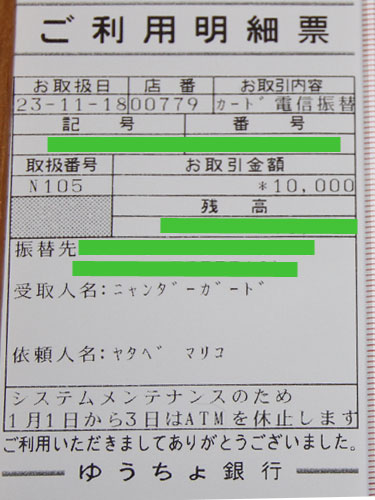 ご利用明細票
お取扱日 店番 お取引内容
23-11-18 00779 カード電信振替
記号 番号
取扱番号 お取引金額
N105 *10,000
残高
振替先
受取人名:ニャンダーガード
依頼人名:ヤタベ マリコ
システムメンテナンスのため
1月1日から3日はATMを休止します
ご利用いただきましてありがとうございました。
ゆうちょ銀行